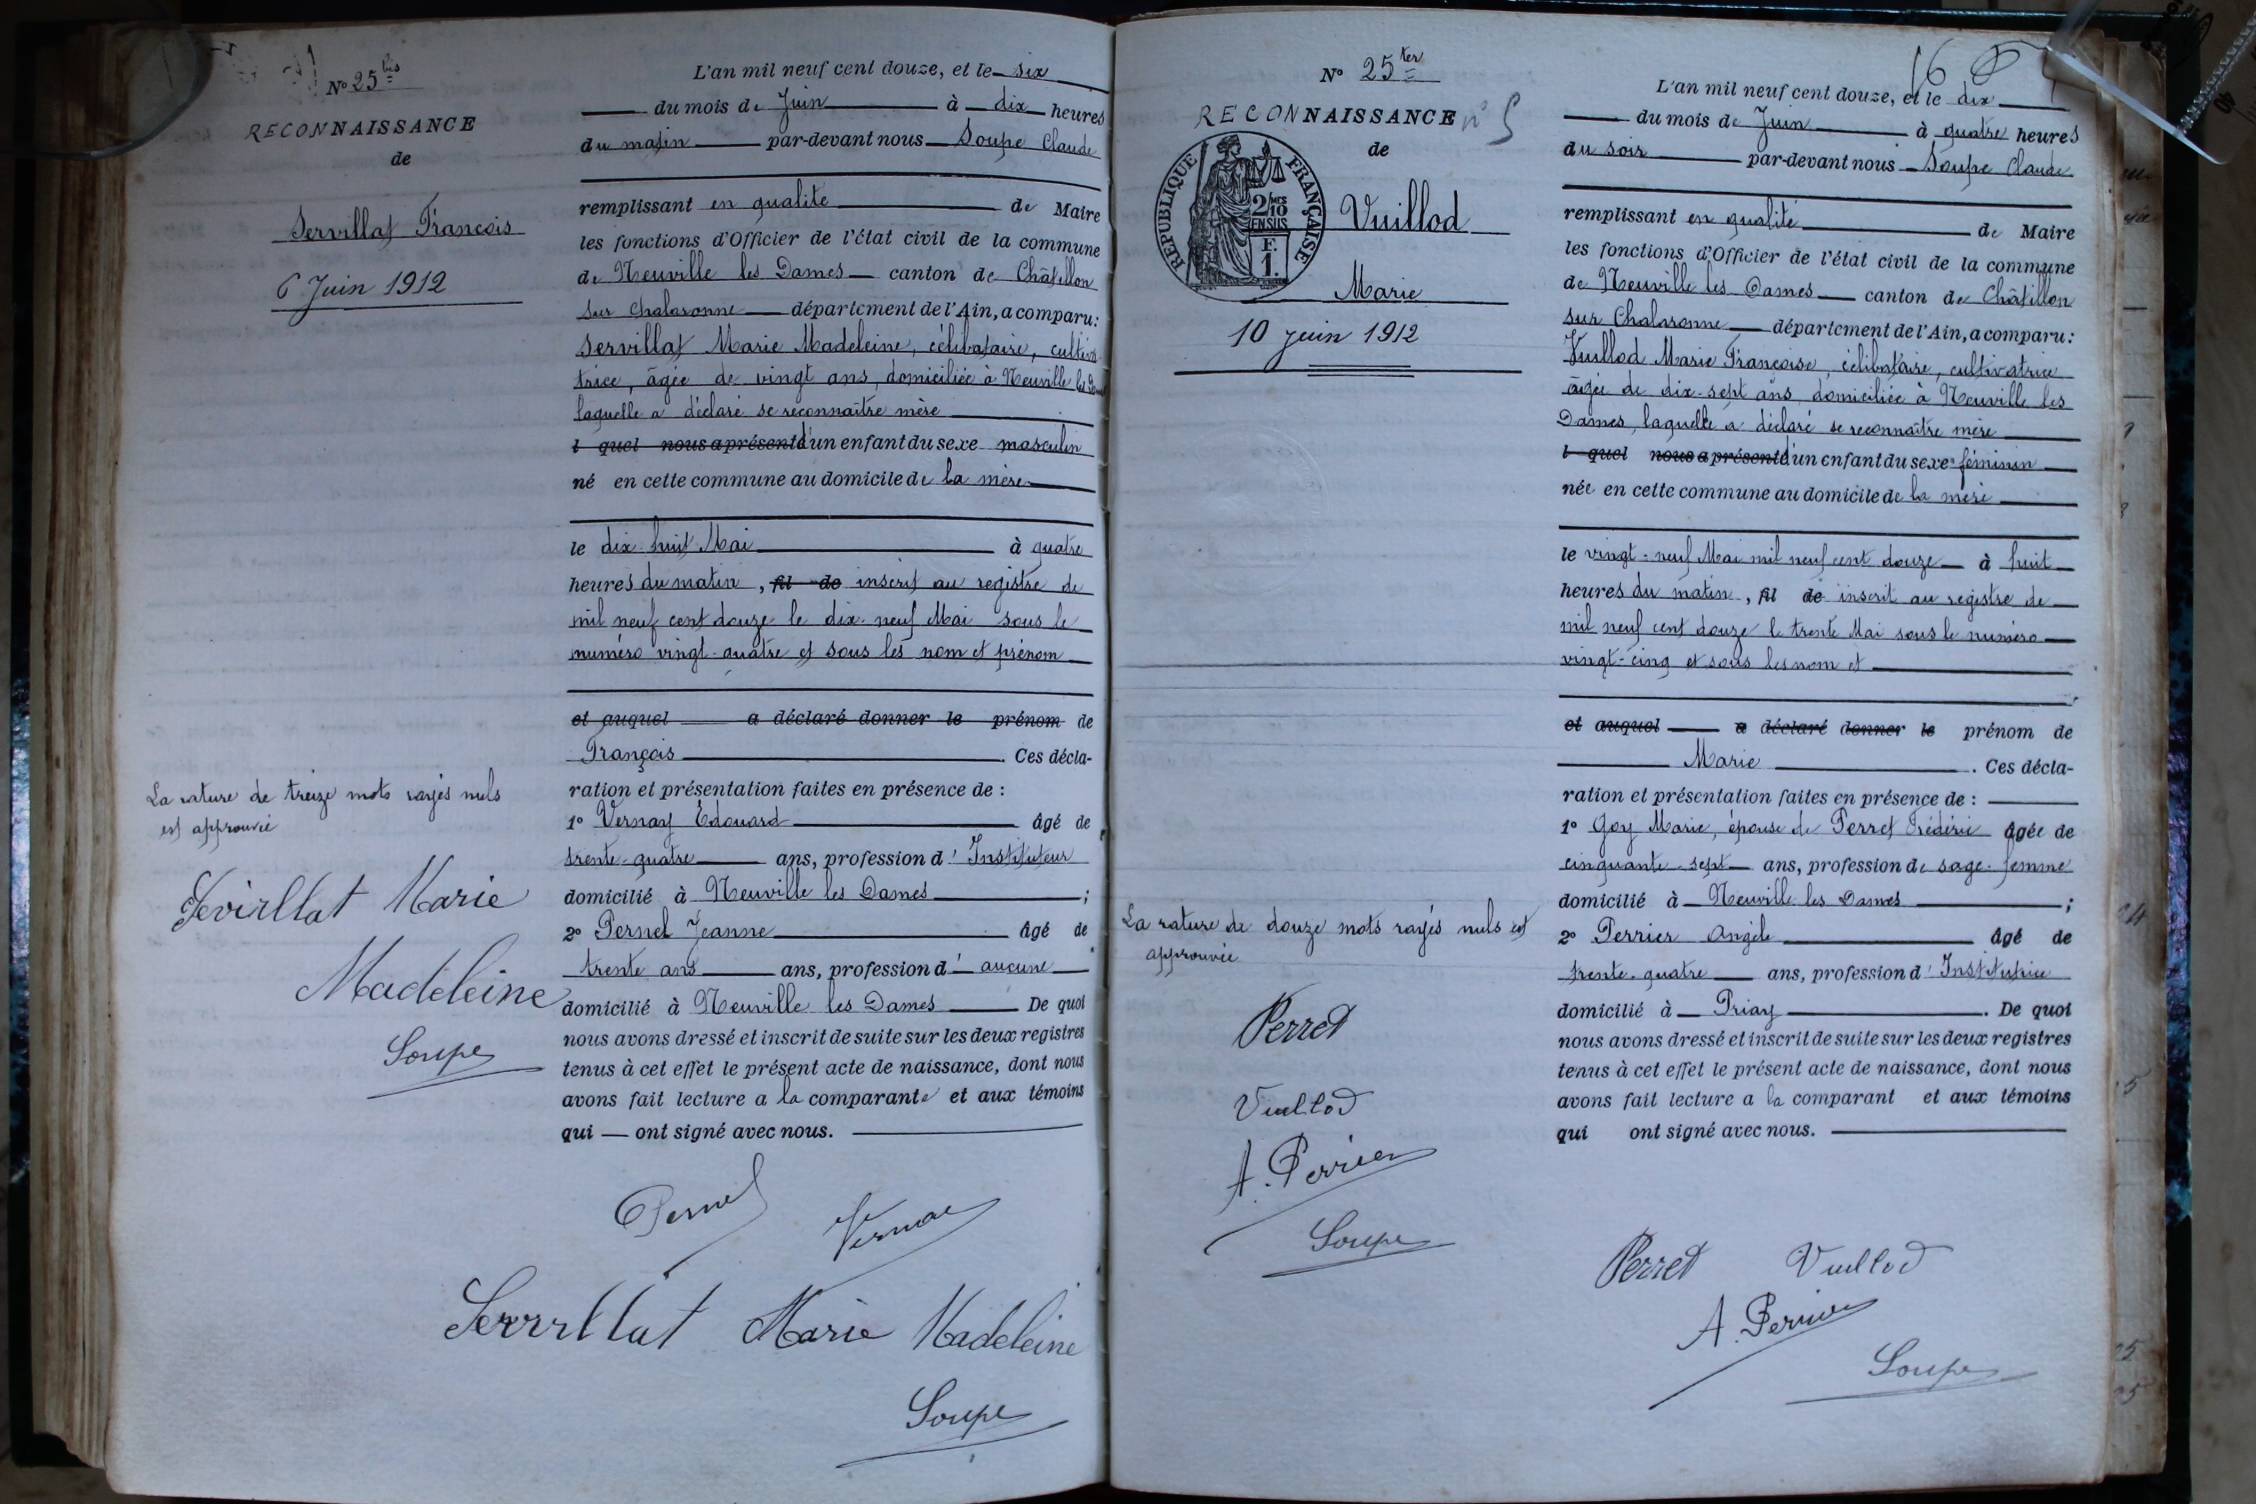 N° 25 bis
RECONNAISSANCE
de
Servillat François
6 Juin 1912
La rature de treize mots rayés nuls
est approuvée
Sevirllat Marie
Madeleine
Soupe
L'an mil neuf cent douze, et le six
du mois de Juin à dix heures
du matin par-devant nous Soupe Claude
remplissant en qualité de Maire
les fonctions d'Officier de l'état civil de la commune
de Neuville les Dames canton de Châtillon
sur Chalaronne département de l'Ain, a comparu :
Servillat Marie Madeleine, célibataire, cultiva
trice, âgée de vingt ans, domiciliée à Neuville les Dames
laquelle a déclaré se reconnaître mère
l quel nous a présenté d'un enfant du sexe masculin
né en cette commune au domicile de la mère
le dix-huit Mai à quatre
heures du matin, fil de inscrit au registre de
mil neuf cent douze le dix-neuf Mai sous le
numéro vingt-quatre et sous les nom et prénom
et auquel a déclaré donner le prénom de
François. Ces décla-
ration et présentation faites en présence de :
1° Vernay Edouard âgé de
trente-quatre ans, profession d'Instituteur
domicilié à Neuville les Dames ;
2° Pernel Jeanne âgé de
trente ans ans, profession d' aucune
domicilié à Neuville les Dames De quoi
nous avons dressé et inscrit de suite sur les deux registres
tenus à cet effet le présent acte de naissance, dont nous
avons fait lecture a la comparante et aux témoins
qui ont signé avec nous.
Pernel Vernay
Serrrllat Marie Madeleine
Soupe
N° 25 ter
RECONNAISSANCE n° 5
de
RÉPUBLIQUE FRANÇAISE
2/10
EN SUS
F.
1.
Vuillod
Marie
10 juin 1912
La rature de douze mots rayés nuls est
approuvée
Perret
Vuillod
A. Perrier
Soupe
16
L'an mil neuf cent douze, et le dix
du mois de Juin à quatre heures
du soir par-devant nous Soupe Claude
remplissant en qualité de Maire
les fonctions d'Officier de l'état civil de la commune
de Neuville les Dames canton de Châtillon
sur Chalaronne département de l'Ain, a comparu :
Vuillod Marie Françoise, célibataire, cultivatrice
âgée de dix-sept ans, domiciliée à Neuville les
Dames, laquelle a déclaré se reconnaître mère
l quel nous a présenté d'un enfant du sexe féminin
née en cette commune au domicile de la mère
le vingt-neuf Mai mil neuf cent douze à huit
heures du matin, fil de inscrit au registre de
mil neuf cent douze le trente Mai sous le numéro
vingt-cinq et sous les nom et
et auquel a déclaré donner le prénom de
Marie. Ces décla-
ration et présentation faites en présence de :
1° Goy Marie, épouse de Perret Frédéric âgée de
cinquante-sept ans, profession de sage-femme
domicilié à Neuville les Dames ;
2° Perrier Angèle âgé de
trente-quatre ans, profession d'Institutrice
domicilié à Priay. De quoi
nous avons dressé et inscrit de suite sur les deux registres
tenus à cet effet le présent acte de naissance, dont nous
avons fait lecture a la comparant et aux témoins
qui ont signé avec nous.
Perret Vuillod
A. Perrier
Soupe